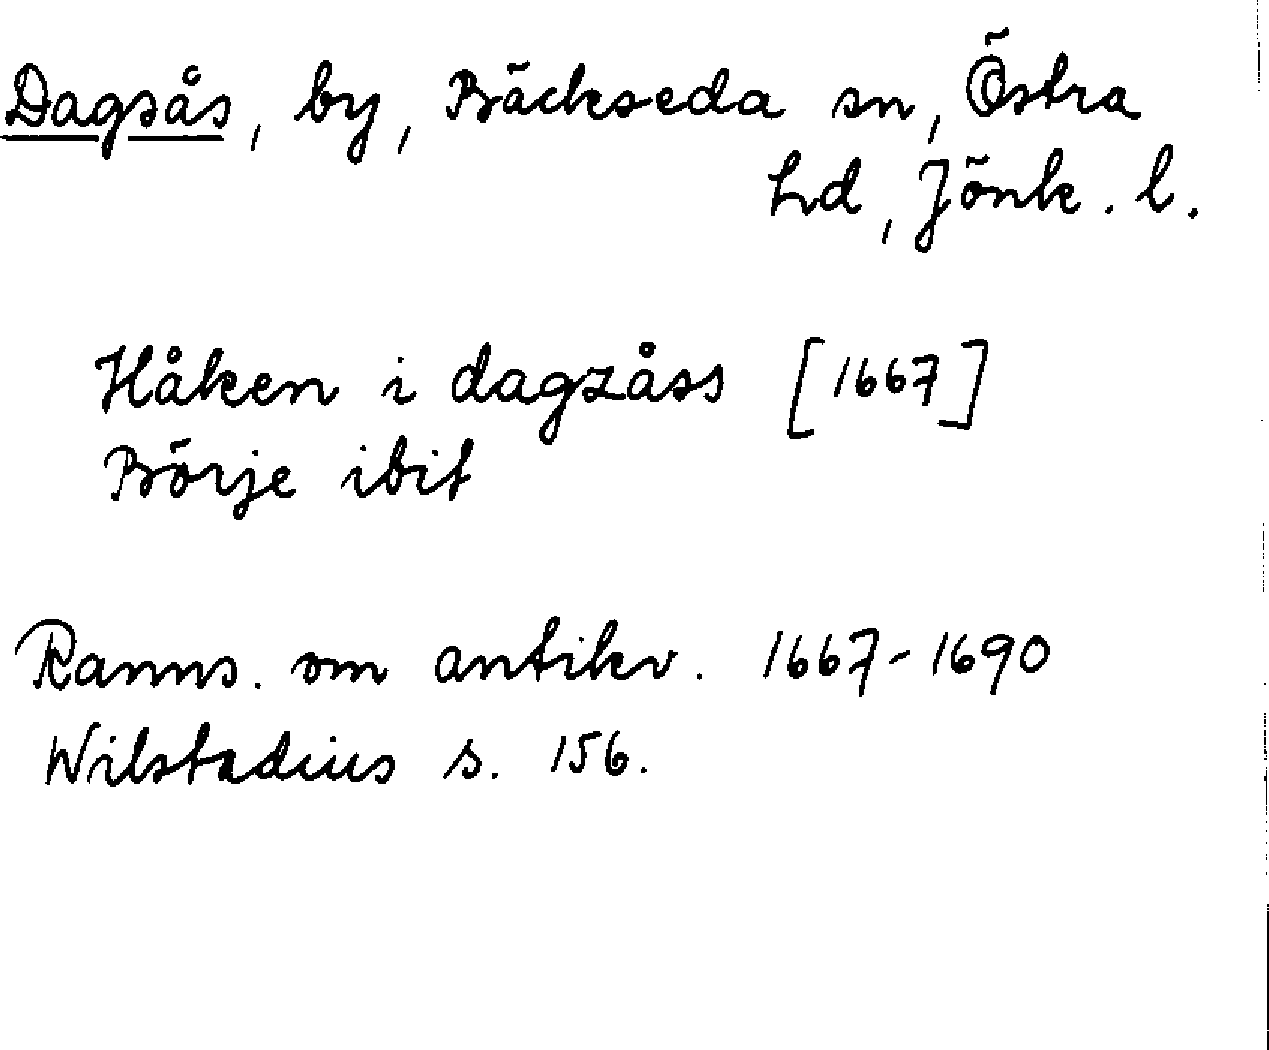 Dagsås, by, Bäckseda sn, Östra
hd, Jönk. l.
Håken i dagzåss [1667]
Börje ibit
Ranns. om antikv. 1667-1690
Wilstadius s. 156.